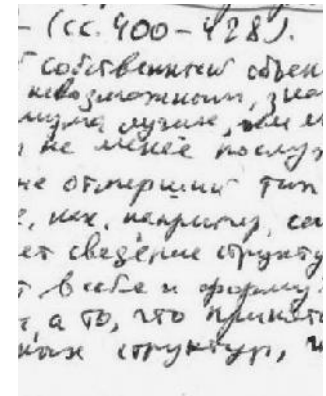 – (сс. 400–428).
собственный объек
невозможным, зна
лучше, чем
не менее послу
не отмерший тип
как, например,
ет сведение структу
в себе и форму
а то, что принято
ных структур,